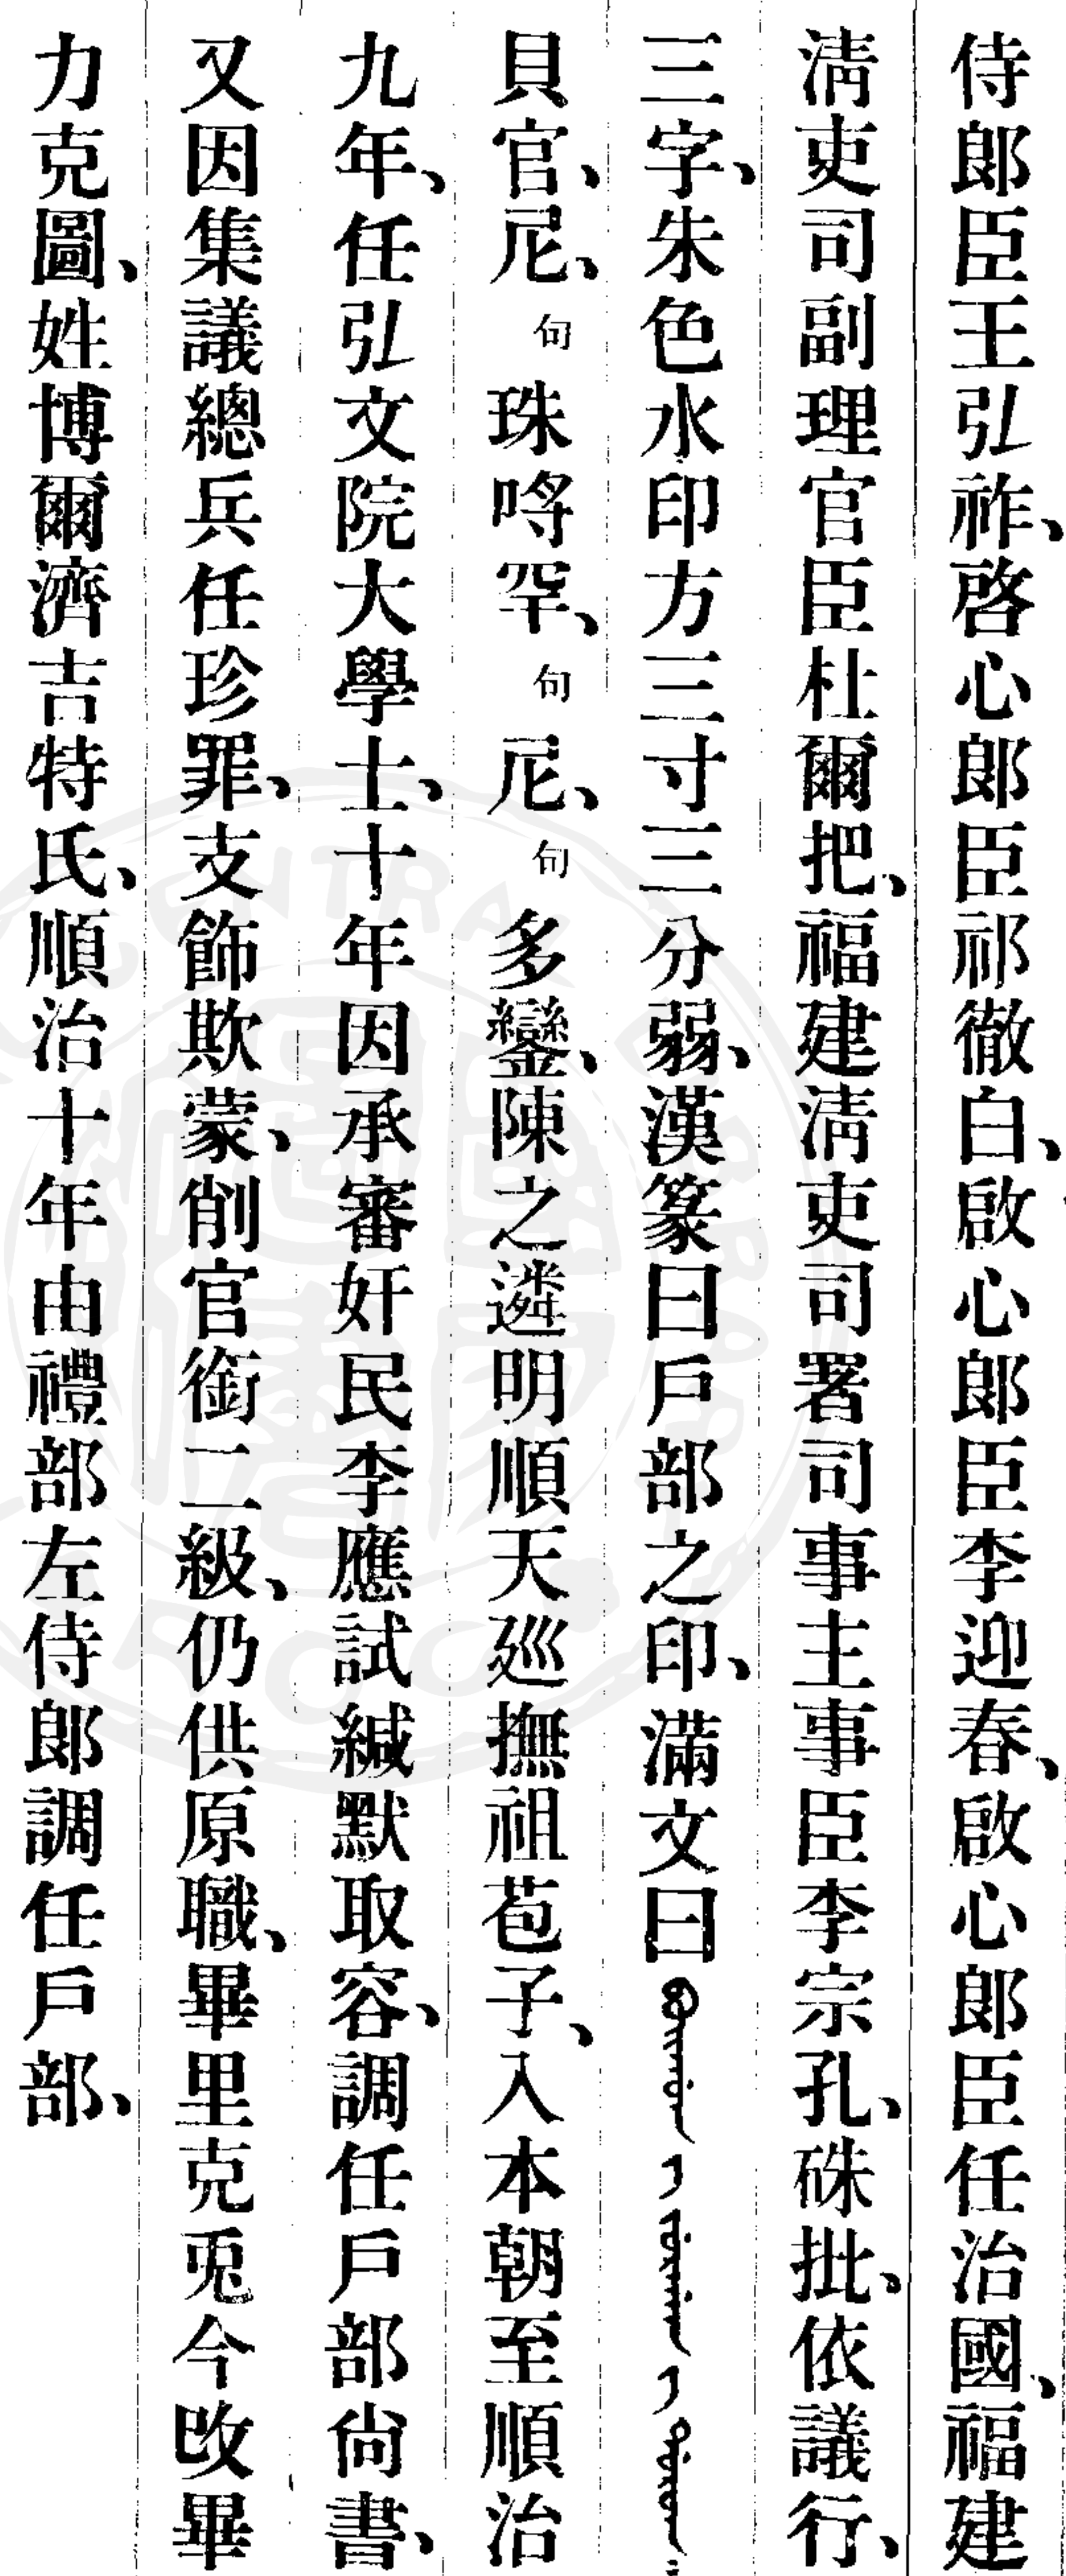 侍郎臣王弘祚、啓心郎臣祁徹白、啟心郎臣李迎春、啟心郎臣任治國、福建
淸吏司副理官臣杜爾把、福建淸吏司署司事主事臣李宗孔、硃批、依議行、
三字、朱色水印方三寸三分弱、漢篆曰戶部之印、滿文曰
貝官、尼、句珠㖟罕、句尼、句多鑾、陳之遴明順天廵撫祖苞子、入本朝至順治
九年、任弘文院大學士、十年因承審奸民李應試緘默取容、調任戶部尙書、
又因集議總兵任珍罪、支飾欺蒙、削官銜二級、仍供原職、畢里克兎今改畢
力克圖、姓博爾濟吉特氏、順治十年由禮部左侍郎調任戶部、